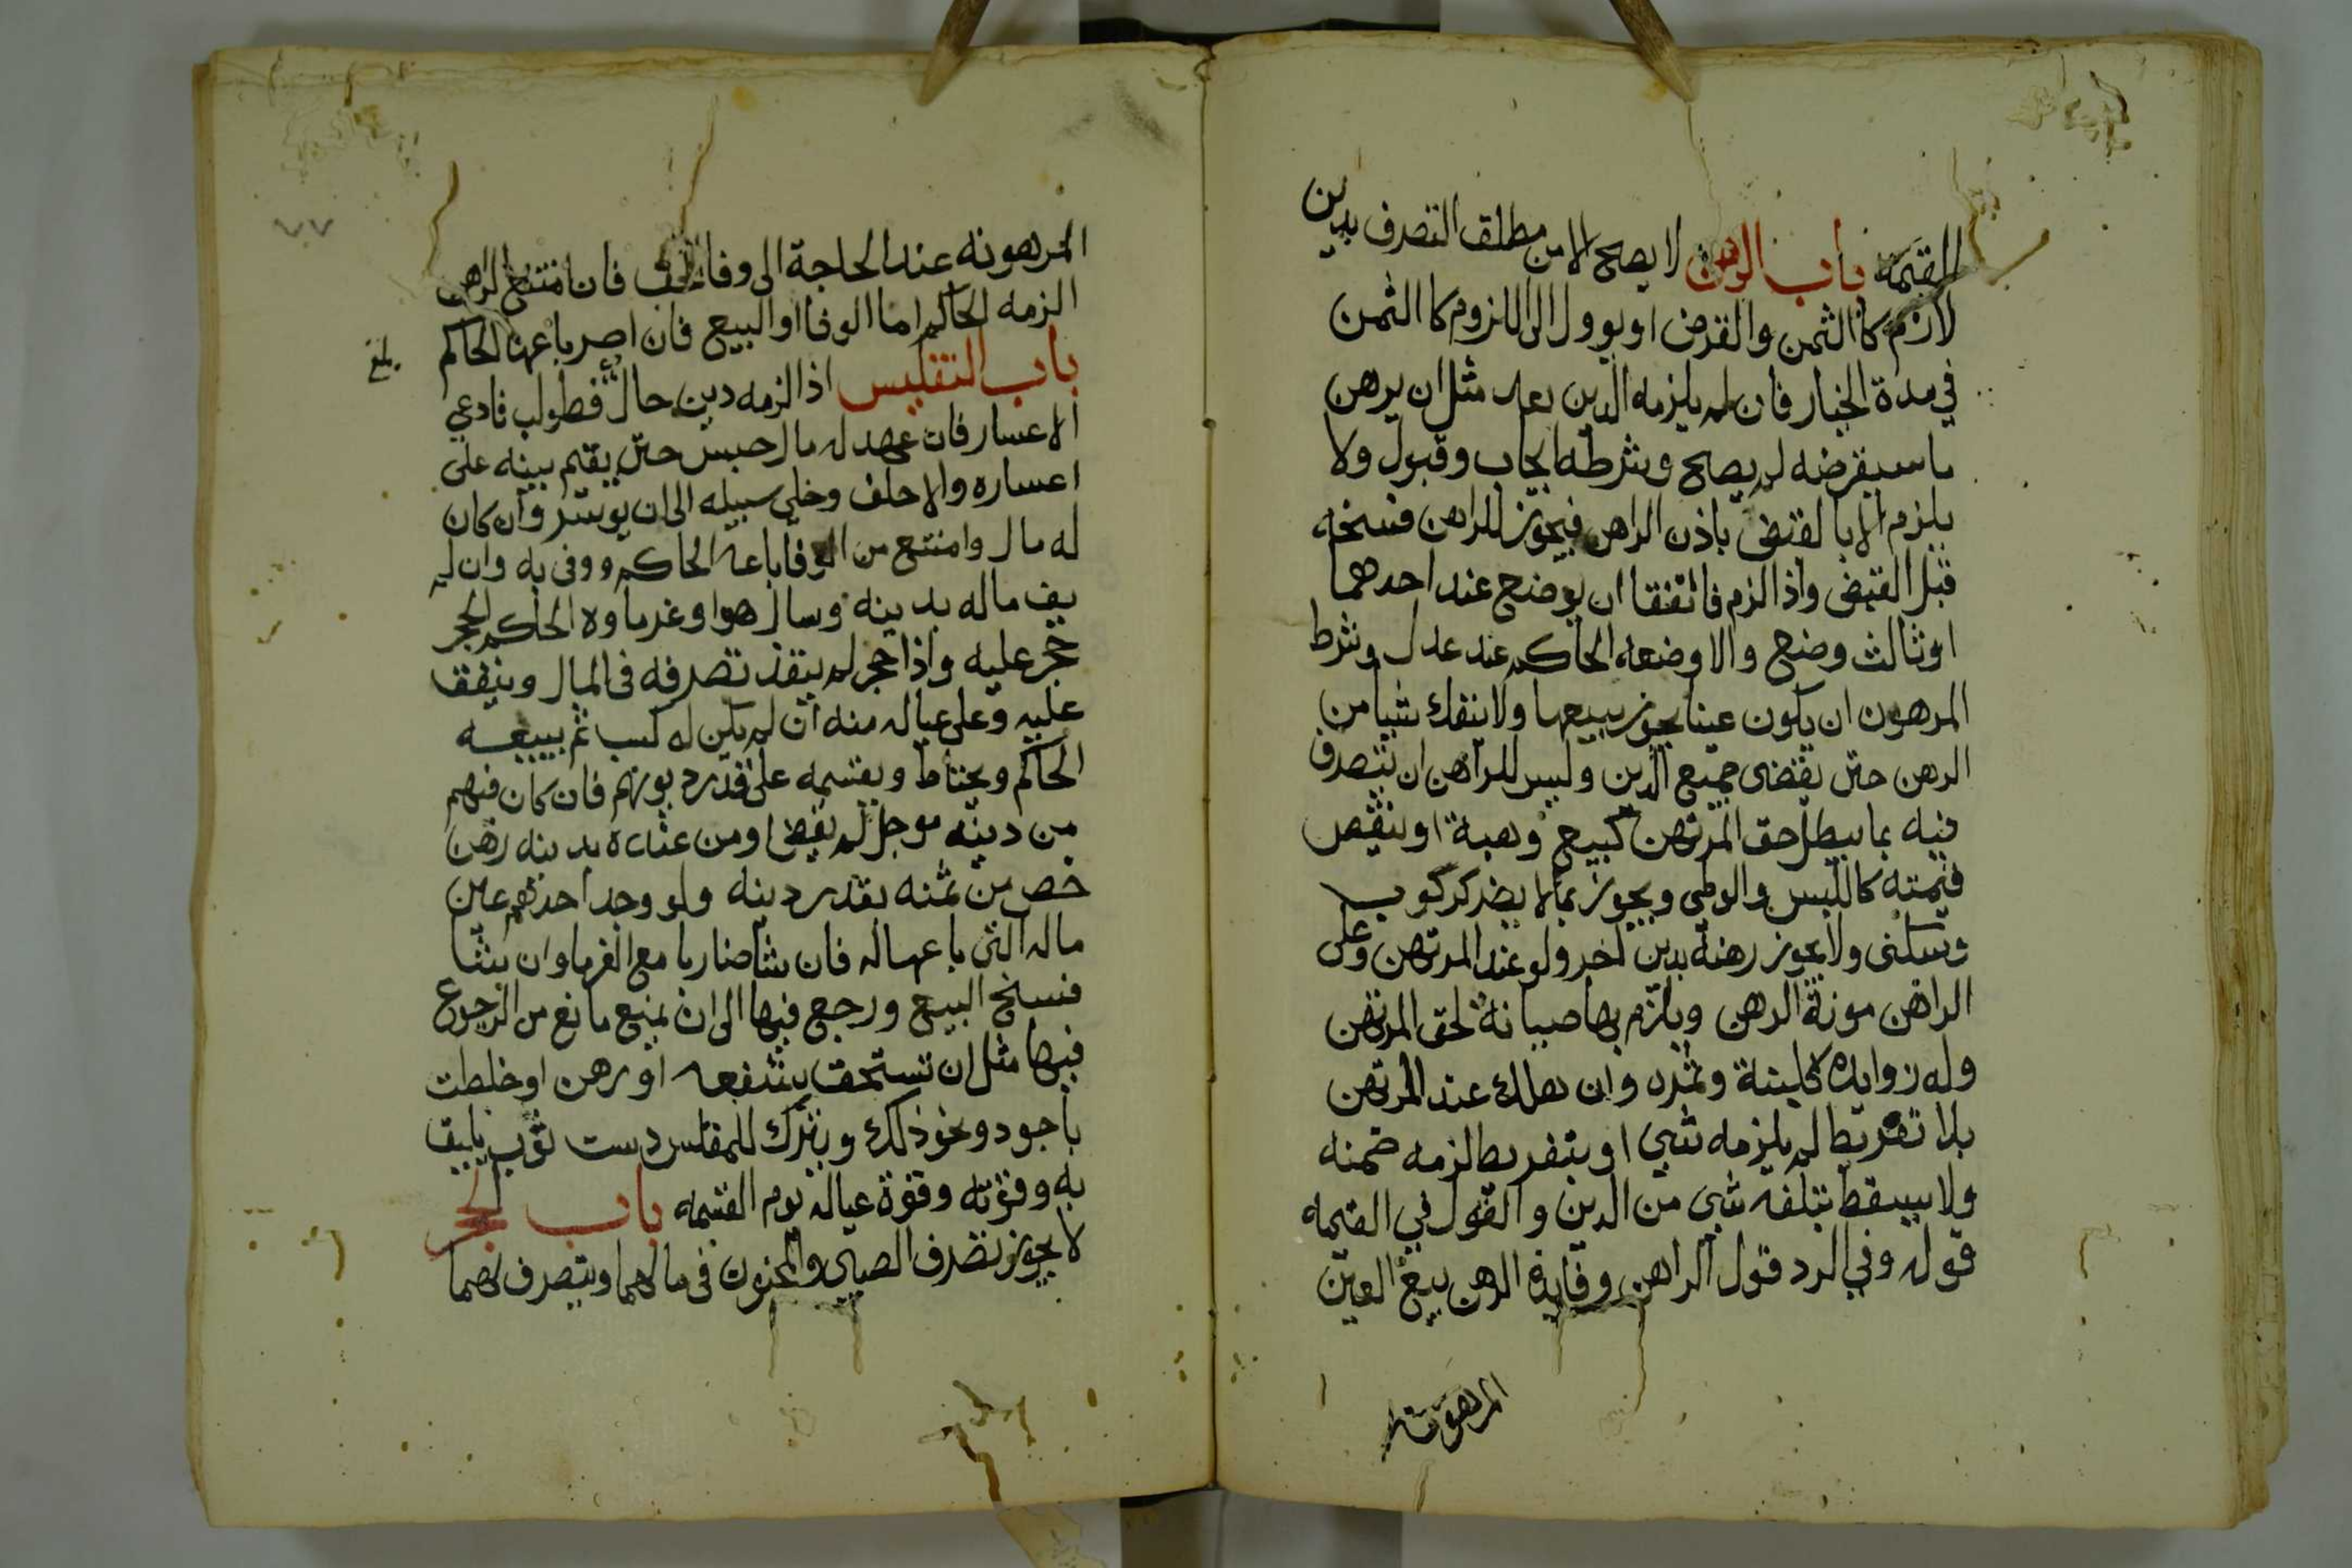 القيمة باب الرهن لا يصح الا من مطلق التصرف بدين
لازم كالثمن والقرض او يوول الى اللزوم كالثمن
في مدة الخيار فان لم يلزمه الدين بعد مثل ان يرهن
ما سيقرضه لم يصح وشرطه ايجاب وقبول ولا
يلزم الا بالقبض باذن الراهن فيجوز للراهن فسخه
قبل القبض واذا لزم فاتفقا ان يوضع عند احدهما
او ثالث وضع والا وضعه الحاكم عند عدل وشرط
المرهون ان يكون عينا يجوز بيعها ولا ينفك شيا من
الرهن حتى يقضى جميع الدين وليس للراهن ان يتصرف
فيه بما يبطل حق المرتهن كبيع وهبة او ينقص
قيمته كاللبس والوطي ويجوز بما لا يضر كركوب
وسكنى ولا يجوز رهنه بدين اخر ولو عند المرتهن وعلى
الراهن مونة الرهن ويلزم بها صيانة لحق المرتهن
وله زوايده كلبنة وثمره وان هلك عند المرتهن
بلا تفريط لم يلزمه شي او بتفريط لزمه ضمنه
ولا يسقط بتلفه شي من الدين والقول في القيمه
قوله وفي الرد قول الراهن وفايدة الرهن بيع العين
المرهونه
٧٧
المرهونه عند الحاجة الى وفا الحق فان امتنع الراهن
الزمه الحاكم اما الوفا او البيع فان اصر باعها الحاكم
بلغ
باب التفليس اذا لزمه دين حال فطولب فادعي
الاعسار فان عهد له مال حبس حتى يقيم بينه على
اعساره والا حلف وخلي سبيله الى ان يوسر وان كان
له مال وامتنع من الوفا باعه الحاكم ووفى به وان لم
يف ماله بدينه وسال هو او غرماوه الحاكم الحجر
حجر عليه واذا حجر لم ينفذ تصرفه في المال وينفق
عليه وعلى عياله منه ان لم يكن له كسب ثم يبيعه
الحاكم ويحتاط ويقسمه على قدر ديونهم فان كان فيهم
من دينه موجل لم يقض او من عنده بدينه رهن
خص من ثمنه بقدر دينه ولو وجد احدهم عين
ماله التى باعها له فان شا ضاربا مع الغرما وان شا
فسخ البيع ورجع فيها الى ان يمنع مانع من الرجوع
فيها مثل ان تستحق بشفعه او رهن او خلطت
باجود ونحو ذلك ويترك للمفلس دست ثوب يليق
به وقوته وقوة عياله يوم القسمه باب الحجر
لا يجوز تصرف الصبي والمجنون في مالهما ويتصرف لهما